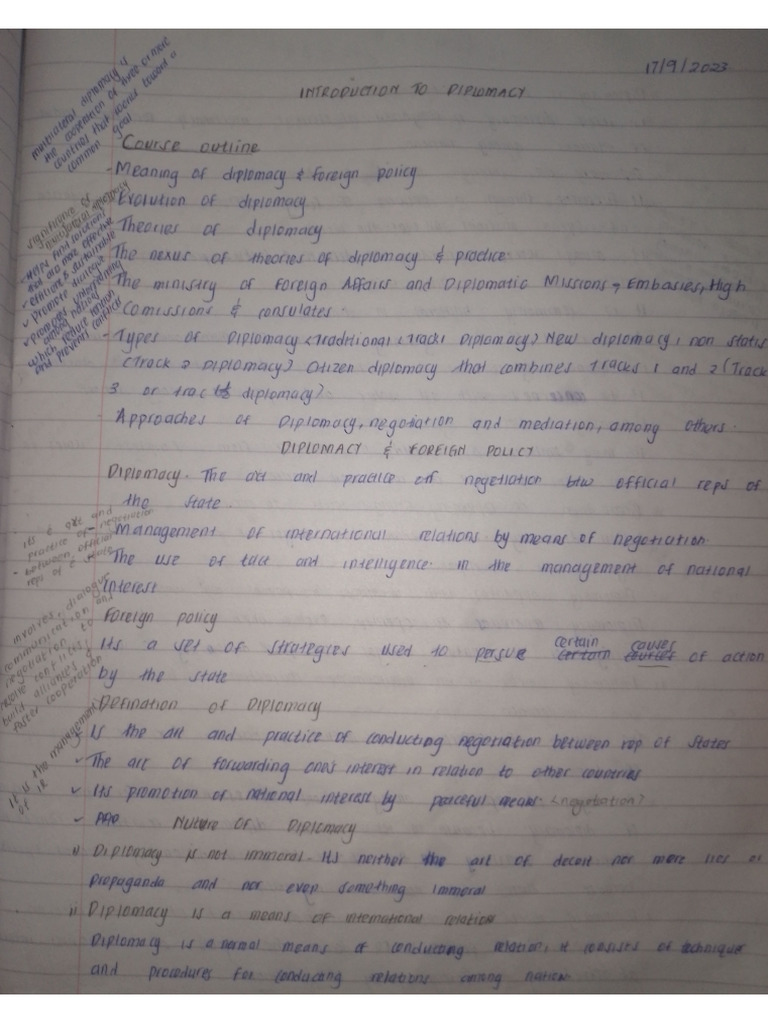 17/9/2023
INTRODUCTION TO DIPLOMACY
multilateral diplomacy is
the cooperation of three or more
countries that works toward a
common goal
Course outline
- Meaning of diplomacy & foreign policy
Evolution of diplomacy
Theories of diplomacy
The nexus of theories of diplomacy & practice.
The ministry of Foreign Affairs and Diplomatic Missions → Embasies, High
Comissions & consulates.
- Types of Diplomacy <Traditional <Track1 Diplomacy> New diplomacy, non states
<Track 2 Diplomacy> Citizen diplomacy that combines Tracks 1 and 2 (Track
3 or trac diplomacy>
- Approaches of Diplomacy, negotiation and mediation, among others.
significance of
multilateral diplomacy
- Helps find solutions
that are more effective
efficient & sustainable
✓ Promote dialogue
✓ promotes understanding
among nations
which reduce tension
and prevents conflict
DIPLOMACY & FOREIGN POLICY
Diplomacy. The art and practice of negotiation btw official reps of
the state.
- Management of international relations by means of negotiation.
- The use of tact and intelligence in the management of national
interest
its e art and
practice of negotiation
between official
reps of e state
Foreign policy
Its a set of strategies used to persue certain causes of action
by the state
involves, dialogue
communication and
negotiation to
resolve conflicts,
build alliances &
foster cooperation
Defination of Diplomacy
✓ Is the art and practice of conducting negotiation between rep of states
✓ The art of forwarding one's interest in relation to other countries
✓ Its promotion of national interest by peaceful means <negotiation>
It is the management
of IR
✓ Nature of Diplomacy
i) Diplomacy is not immoral. Its neither the art of deceit nor mere lies or
propaganda and nor even something immoral
ii) Diplomacy is a means of international relation
Diplomacy is a normal means of conducting relation, it consists of technique
and procedures for conducting relations among nation